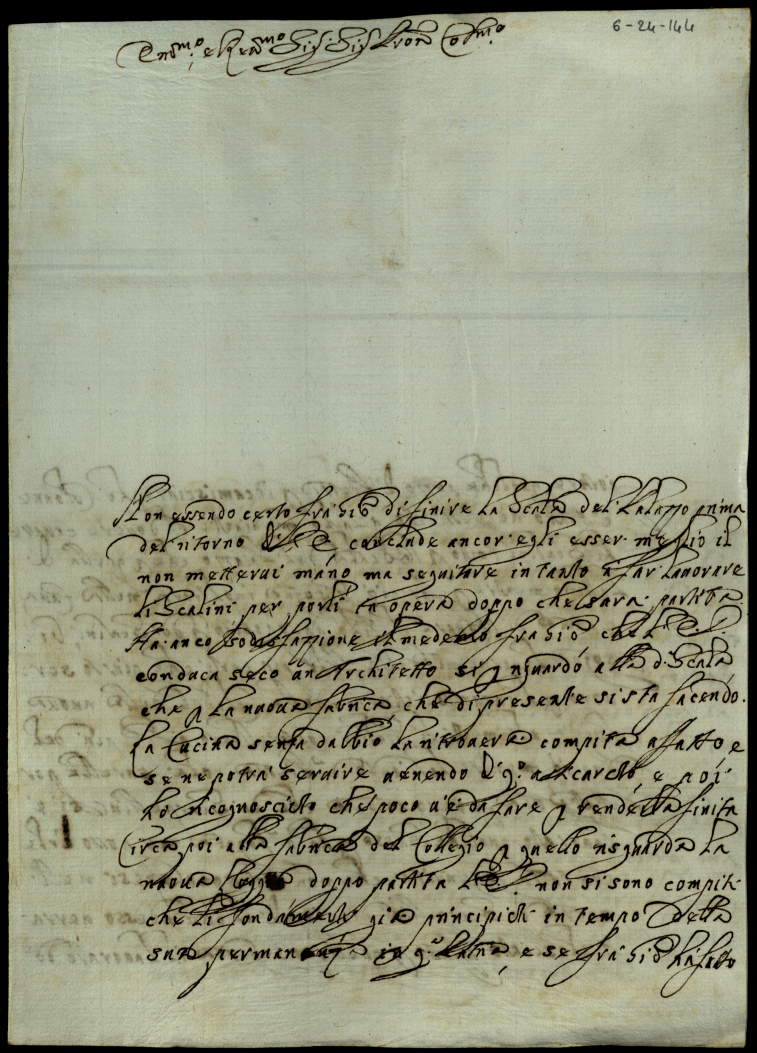 6-24-144
Em.mo e R.mo Sig. Sig. Pron Col.mo
Non essendo certo fra Gio di finire la Scala del Palazzo prima
del ritorno di V. E. conclude ancor egli esser meglio il
non mettervi mano ma seguitare in tanto a far lavorare
li Scalini per porli in opera doppo che sarà partita.
Ha anco sodisfazzione il medemo fra Gio che V. E.
conduca seco un Architetto si p riguardo alla d. Scala
che p la nuova fabrica che di presente si sta facendo.
La Cucina senza dubbio la ritroverà compita affatto e
se ne potrà servire havendo e poi
ho ricognosciuto che poco vi è da fare p renderla finita
Circa poi alla fabrica del Collegio p quello risguarda la
nuova doppo partita V. E. non si sono compiti
che li fondamenti già principiati in tempo della
sua permanenza in q.a Patria e se fra Gio ha fatto